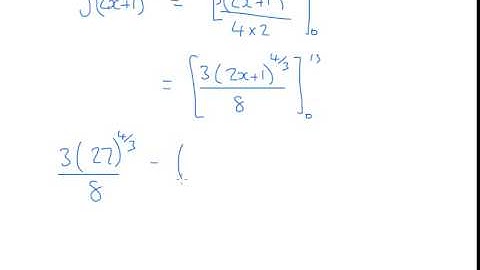 ∫(2x+1) = [3(2x+1)/4×2]₀
= [3(2x+1)^4/3/8]₀¹³
3(27)^4/3/8 - (